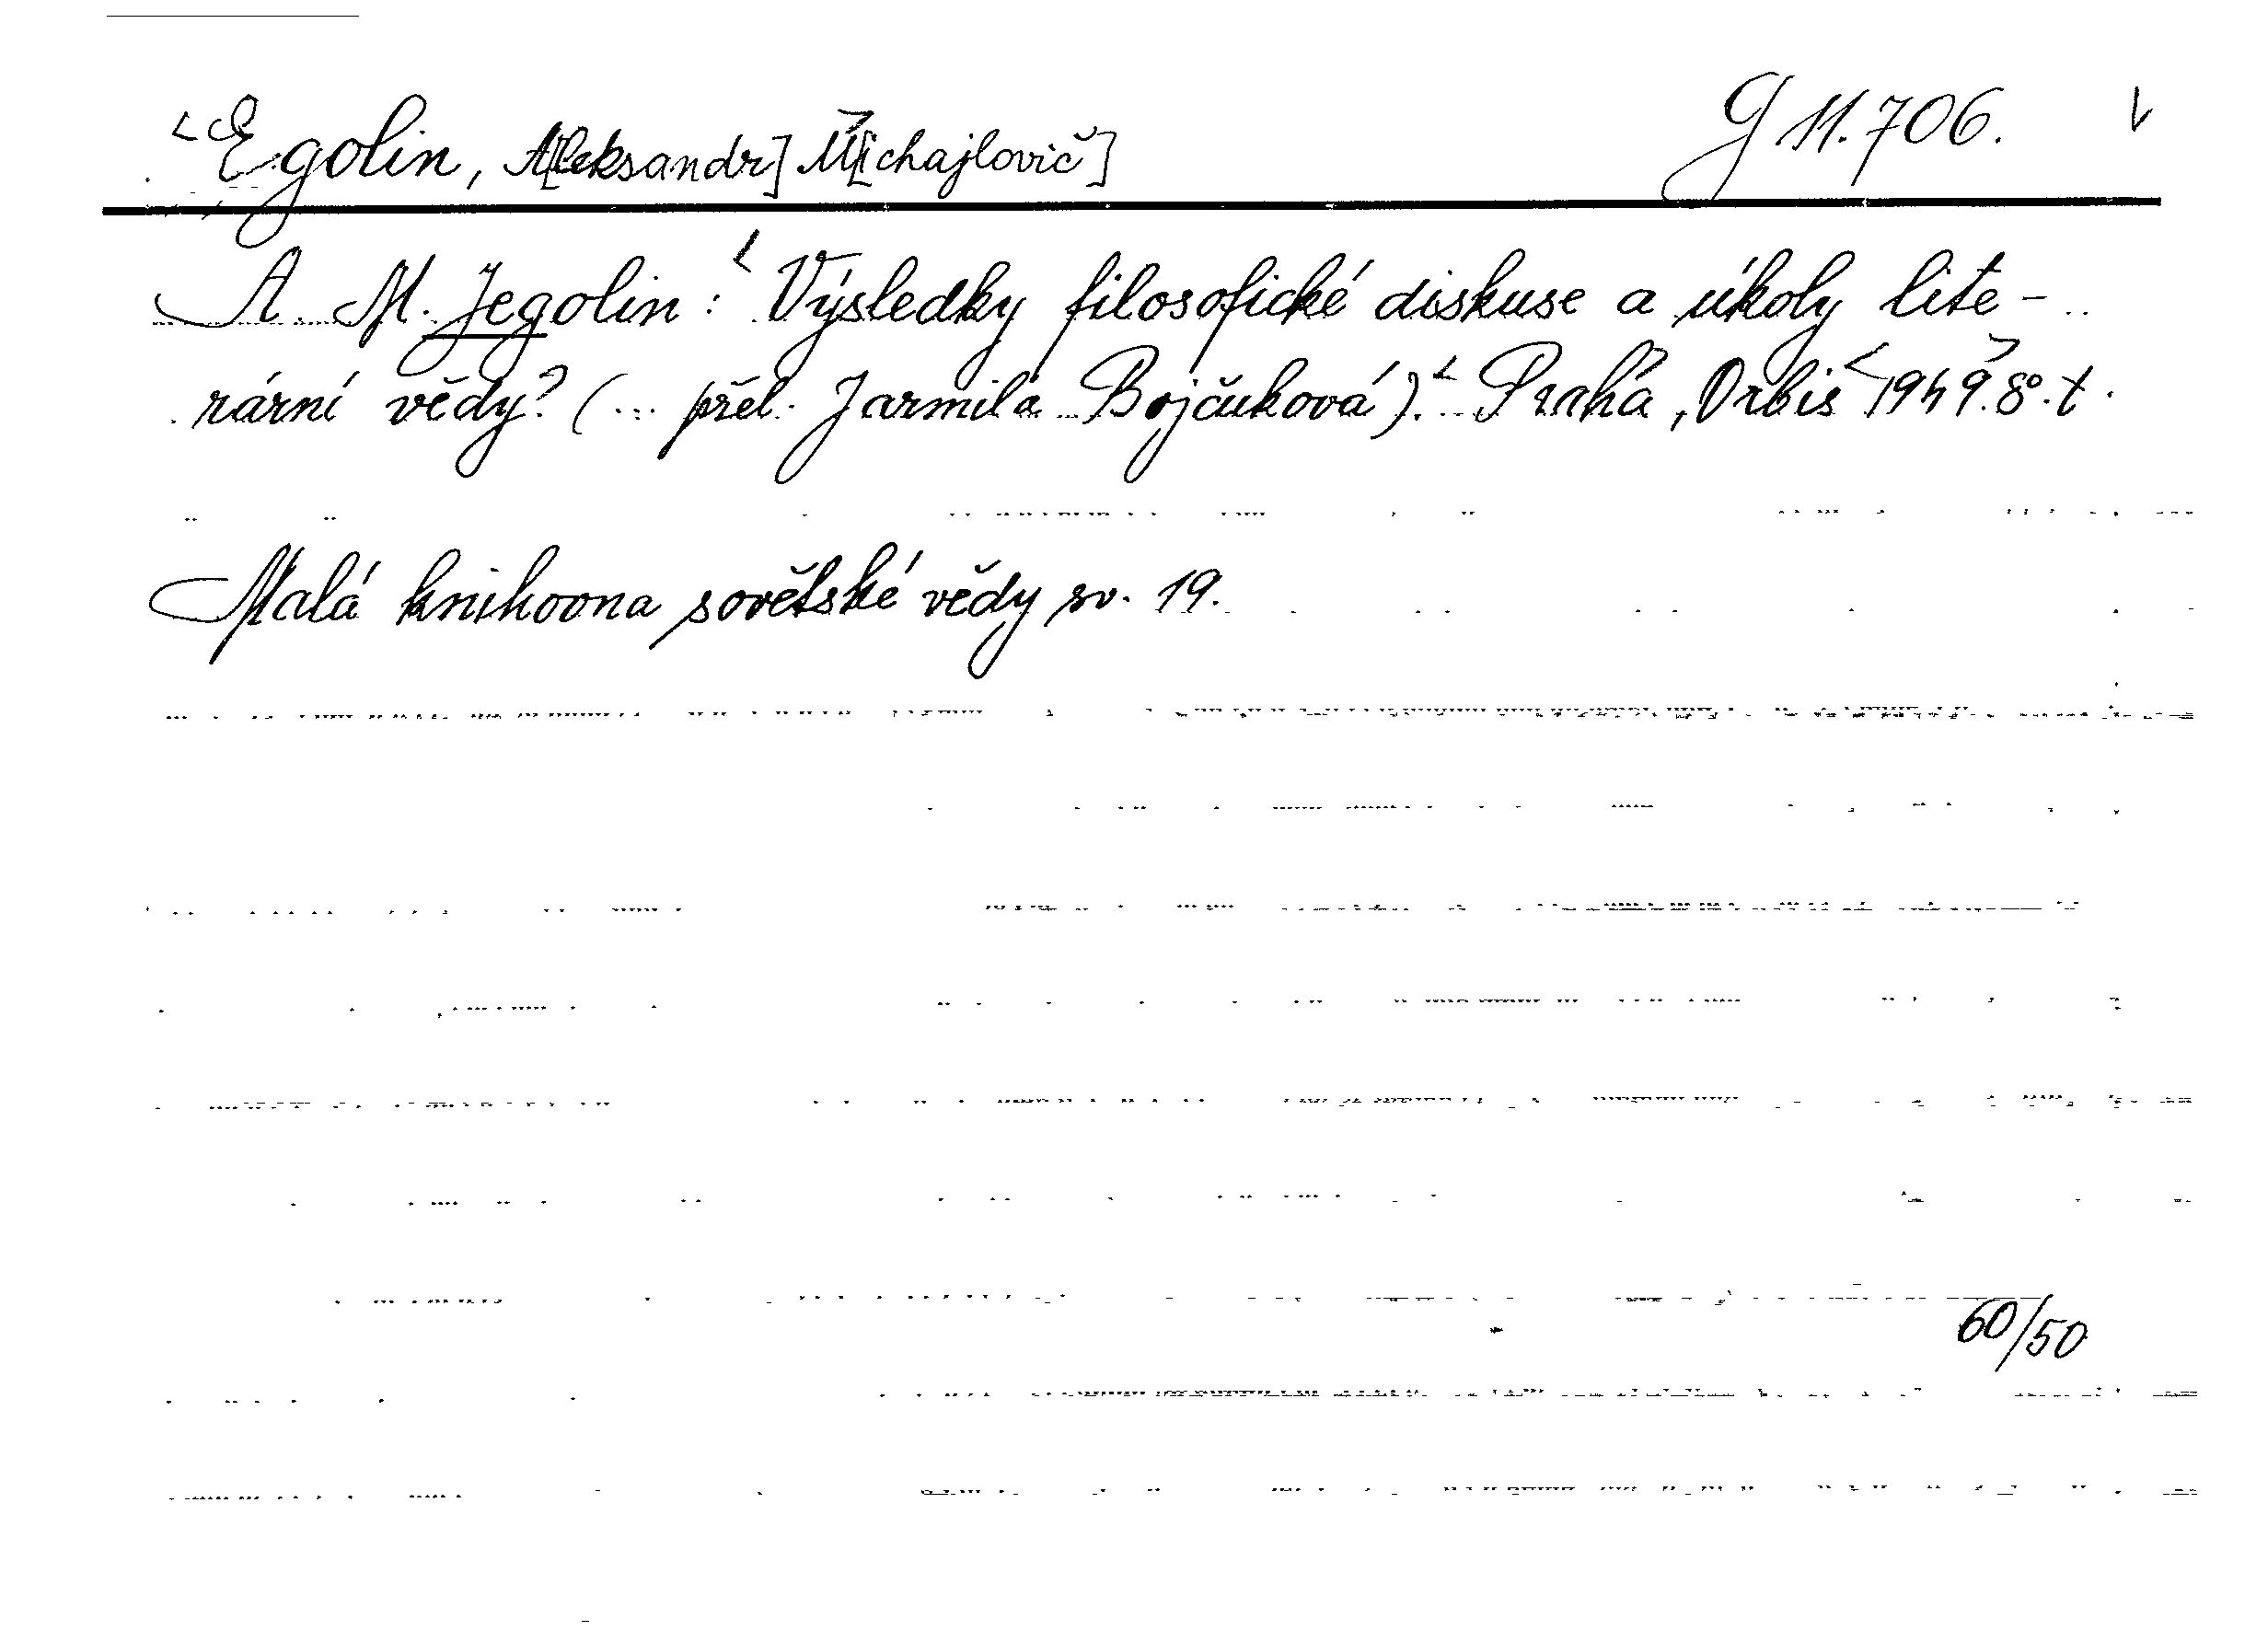 Egolin, A[leksandr] M[ichajlovič] G 11.706.
A. M. Jegolin: Výsledky filosofické diskuse a úkoly lite-
rární vědy? (... přel. Jarmila Bojčuková). Praha, Orbis 1949. 8°. t.
Malá knihovna sovětské vědy sv. 19.
60/50